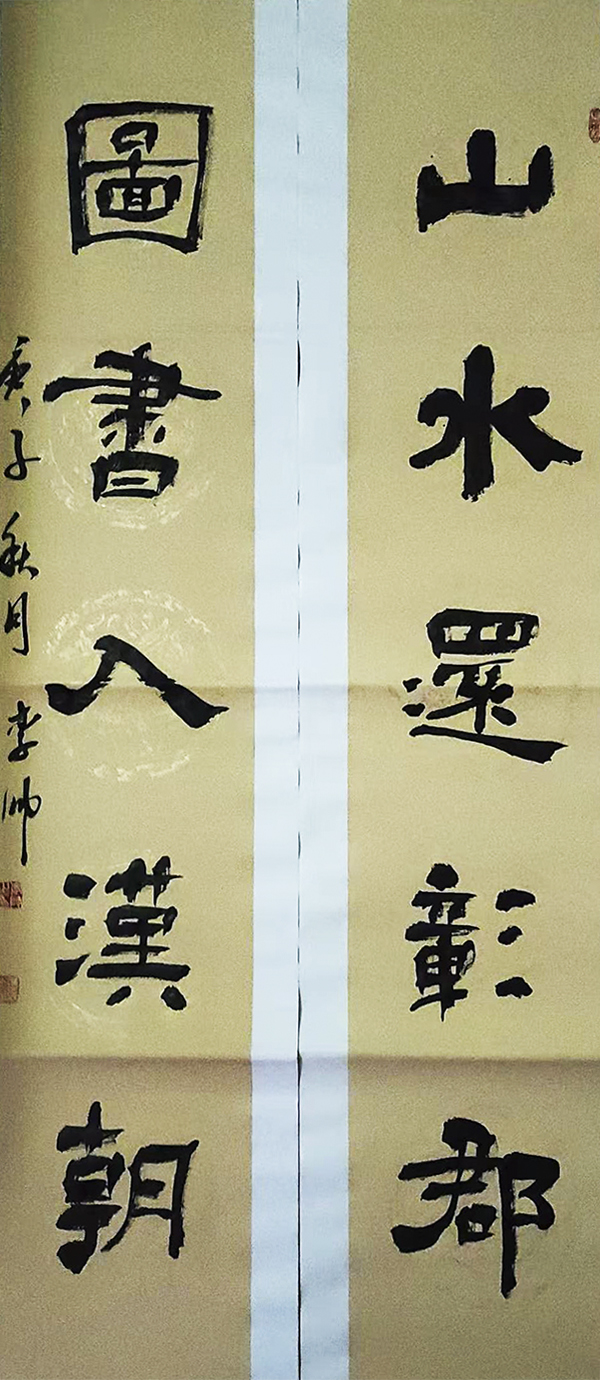 山水還彰郡
圖書入漢朝
庚子秋月 李帅